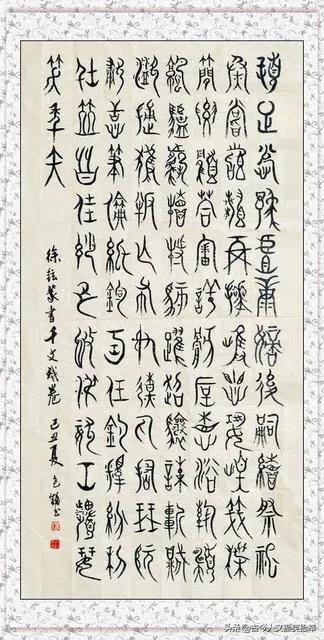 頓足悅豫且康嫡後嗣續祭祀
烝嘗稽顙再拜悚懼恐惶箋牒
簡要顧答審詳骸垢想浴執熱願
涼驢騾犢特駭躍超驤誅斬賊
盜捕獲叛亡布射僚丸嵇琴阮
嘯恬筆倫紙鈞巧任釣釋紛利
俗並皆佳妙毛施淑姿工顰妍
笑年矢
徐鉉篆書千文殘卷 己丑夏
头条